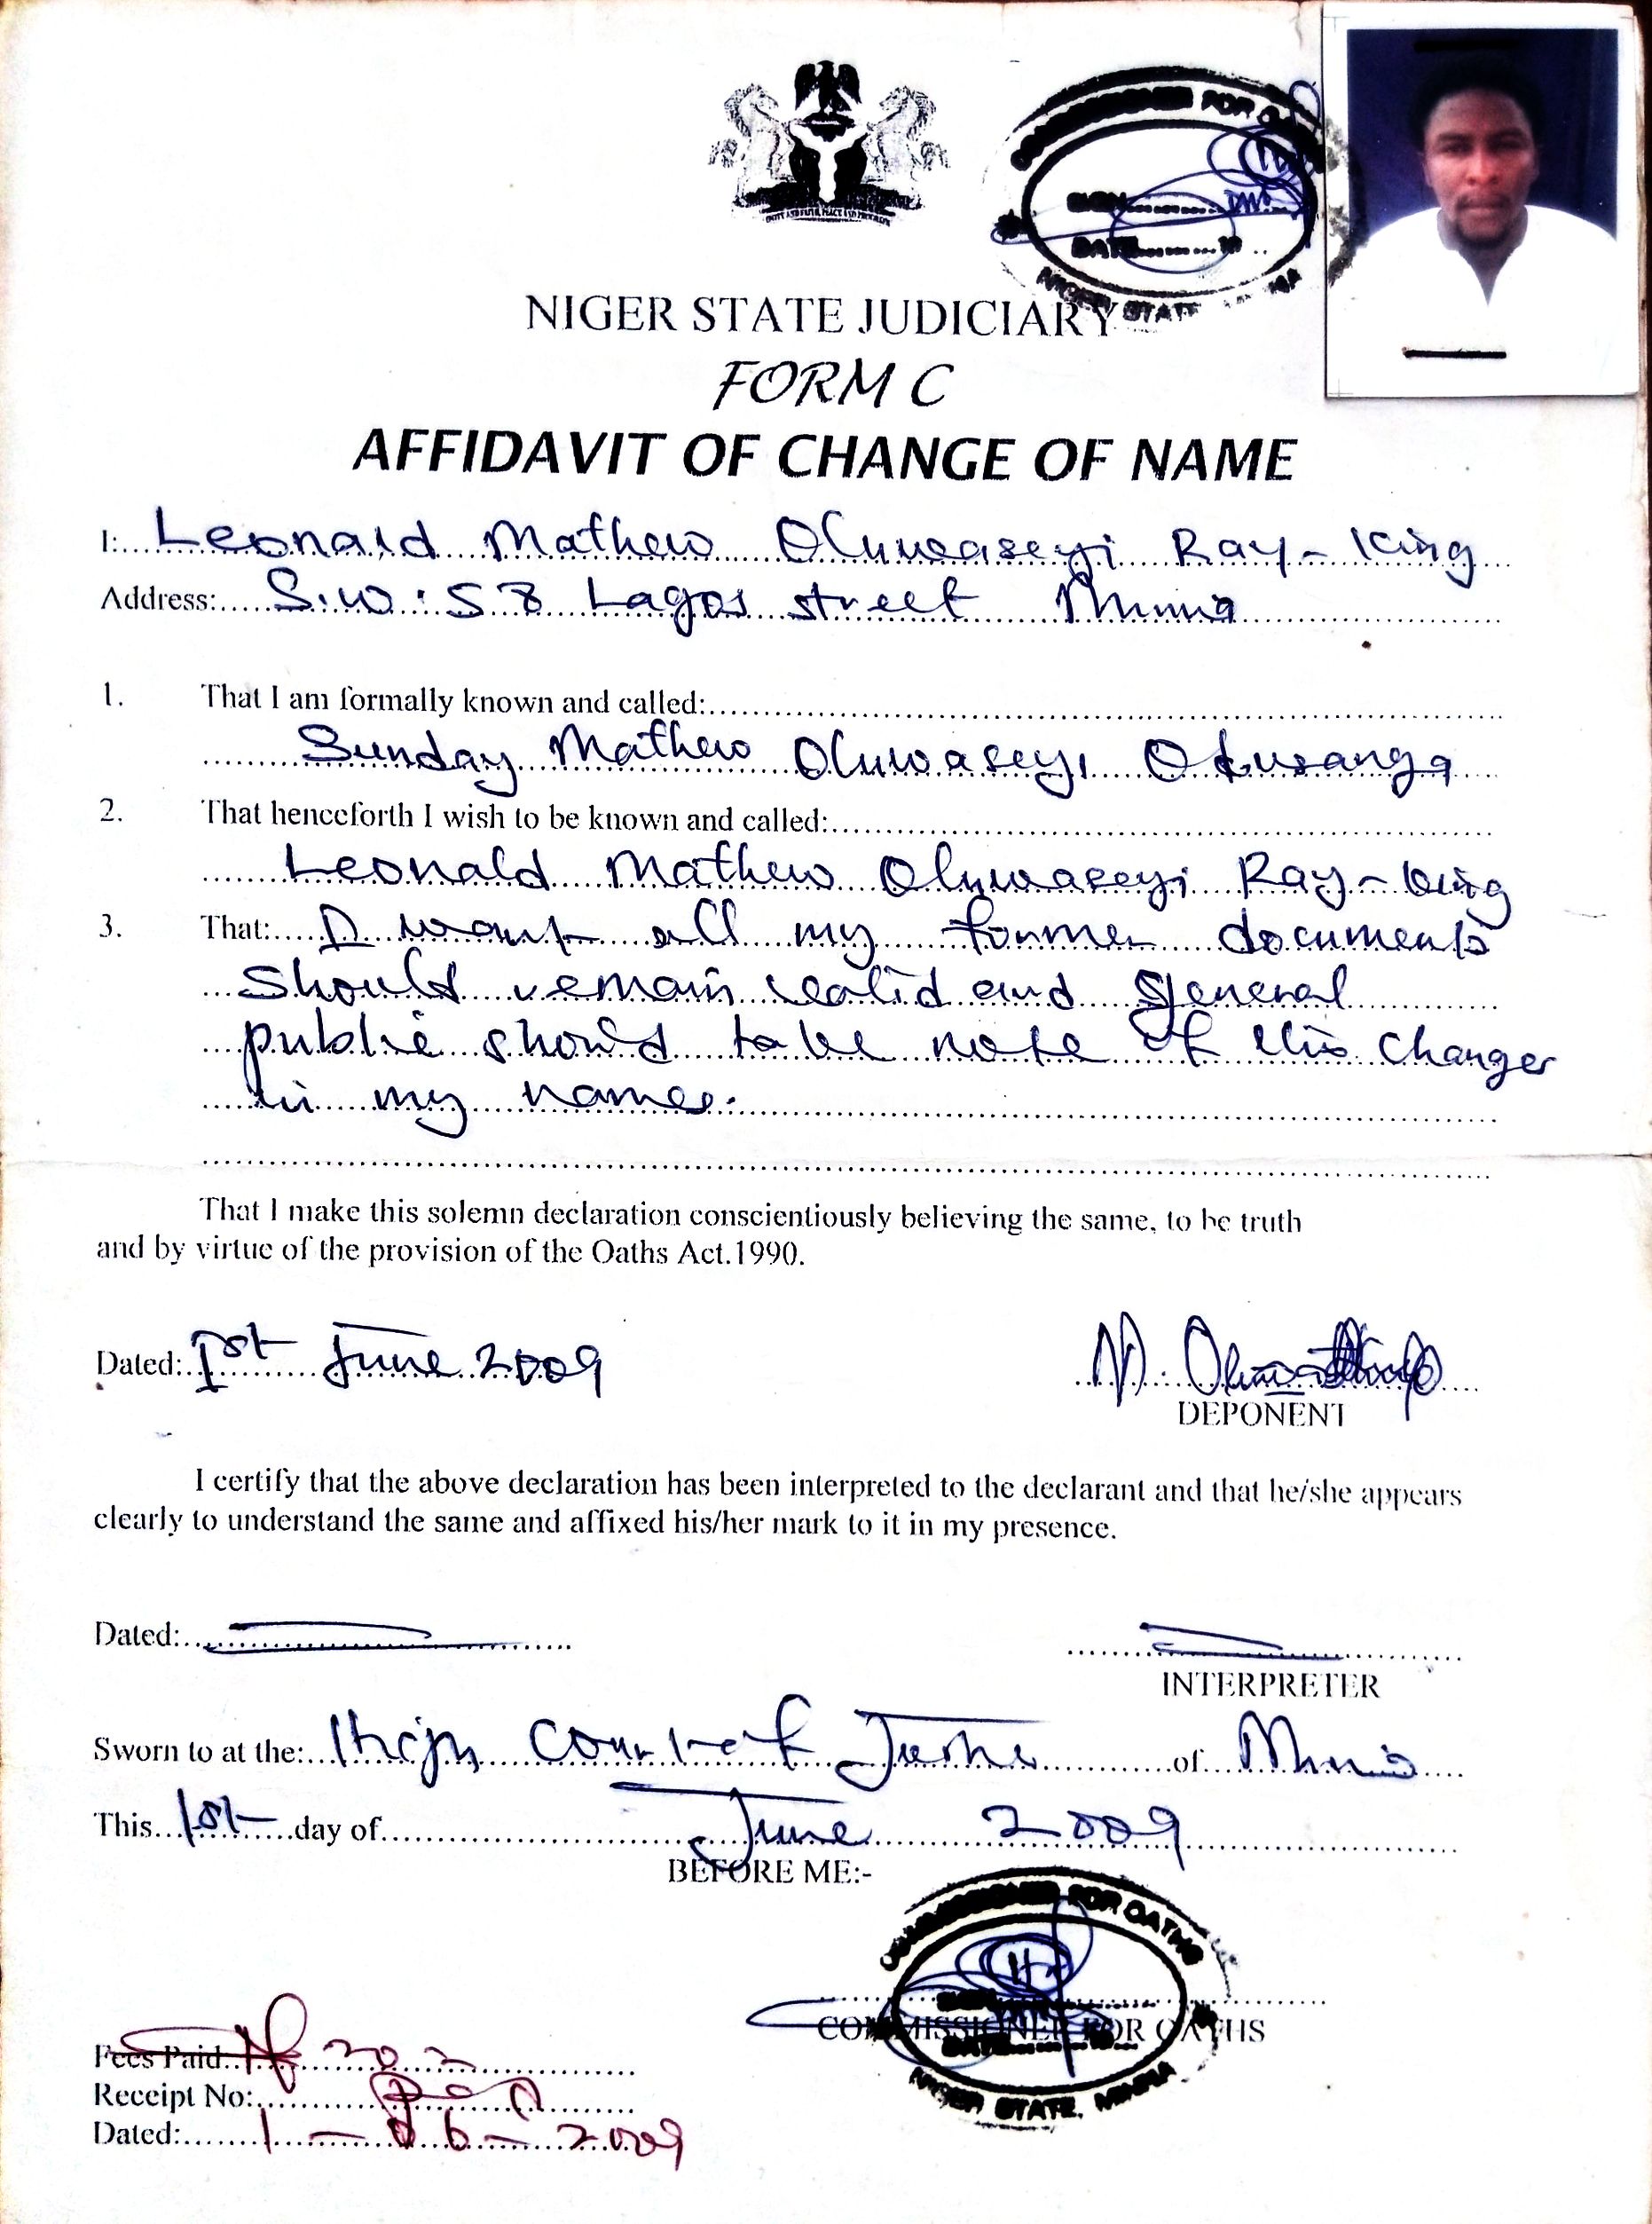 COMMISSIONER FOR OATHS
SIGN
DATE
NIGER STATE
NIGER STATE JUDICIARY
FORM C
AFFIDAVIT OF CHANGE OF NAME
I: Leonald Mathew Oluwaseyi Ray-King
Address: S.W. 58 Lagos street Minna
1. That I am formally known and called:
Sunday Mathew Oluwaseyi Odusanya
2. That henceforth I wish to be known and called:
Leonald Mathew Oluwaseyi Ray-King
3. That: I want all my former documents
should remain valid and general
public should take note of this changes
in my names.
That I make this solemn declaration conscientiously believing the same, to be truth
and by virtue of the provision of the Oaths Act.1990.
Dated: 1st June 2009
DEPONENT
I certify that the above declaration has been interpreted to the declarant and that he/she appears
clearly to understand the same and affixed his/her mark to it in my presence.
Dated:
INTERPRETER
Sworn to at the: High Court of Justice of Minna
This 1st day of June 2009
BEFORE ME:-
COMMISSIONER FOR OATHS
SIGN
COMMISSIONER FOR OATHS
DATE
NIGER STATE, MINNA
Fees Paid
Receipt No:
Dated: 1-06-2009